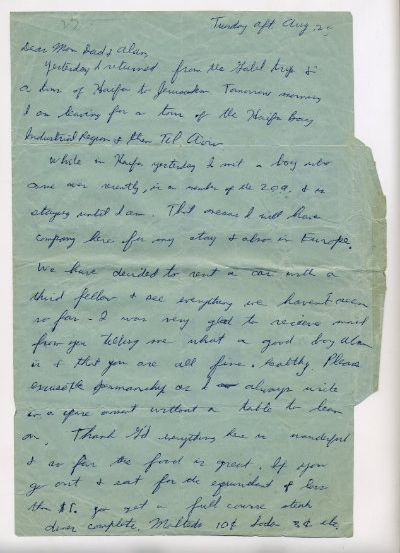 Tuesday aft. Aug 25
Dear Mom Dad & Alan,
Yesterday I returned from the Galil trip &
a tour of Haifa to Jerusalem. Tomorrow morning
I am leaving for a tour of the Haifa Bay
Industrial Region & then Tel Aviv
While in Haifa yesterday I met a boy who
came over recently, is a member of the ZOA. & is
staying until I am. That means I will have
company here for my stay & also in Europe.
We have decided to rent a car with a
third fellow & see everything we haven't seen
so far - I was very glad to receive mail
from you telling me what a good boy Alan
is & that you are all fine & healthy. Please
excuse penmanship as I always write
in a spare moment without a table to lean
on. Thank G'd everything here is wonderful
& so far the food is great. If you
go out & eat for the equivalent of less
than $1. you get a full course steak
dinner complete. Malteds 10¢ Sodas 3¢ etc.